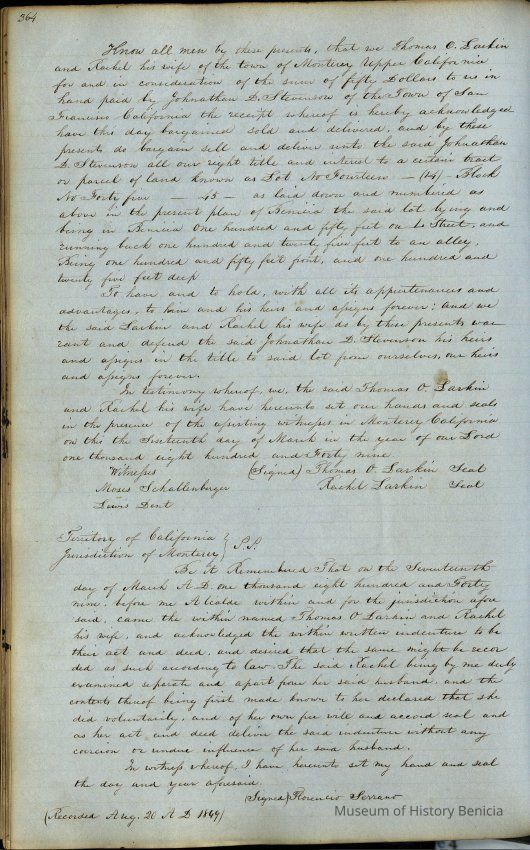 364
Know all men by these presents, that we Thomas O. Larkin
and Rachel his wife of the town of Monterey Upper California
for and in consideration of the sum of fifty Dollars to us in
hand paid by Johnathan D. Stevenson of the Town of San
Francisco California the receipt whereof is hereby acknowledged
have this day bargained sold and delivered, and by these
presents do bargain sell and deliver unto the said Johnathan
D. Stevenson all our right title and interest to a certain tract
or parcel of land known as Lot No Fourteen — (14) — Block
No Forty five — 45 — as laid down and numbered as
above in the present plan of Benicia the said lot lying and
being in Benicia One hundred and fifty feet on L Street, and
running back one hundred and twenty five feet to an alley,
Being one hundred and fifty feet front, and one hundred and
twenty five feet deep
To have and to hold, with all its appurtenances and
advantages, to him and his heirs and assigns forever; and we
the said Larkin and Rachel his wife do by these presents war
rant and defend the said Johnathan D. Stevenson his heirs
and assigns in the title to said lot from ourselves, our heirs
and assigns forever.
In testimony whereof, we, the said Thomas O. Larkin
and Rachel his wife have hereunto set our hands and seals
in the presence of the attesting witnesses in Monterey California
on this the Sixteenth day of March in the year of our Lord
one thousand eight hundred and Forty nine
Witnesses (Signed) Thomas O Larkin Seal
Moses Schallenberger Rachel Larkin Seal
Lewis Dent
Territory of California }
Jurisdiction of Monterey } S.S.
Be it Remembered That on the Seventeenth
day of March A.D. one thousand eight hundred and Forty
nine, before me Alcalde within and for the jurisdiction afore
said, came the within named Thomas O Larkin and Rachel
his wife, and acknowledged the within written indenture to be
their act and deed, and desired that the same might be recor
ded as such according to law. The said Rachel being by me duly
examined separate and apart from her said husband, and the
contents thereof being first made known to her declared that she
did voluntarily, and of her own free will and accord seal and
as her act and deed deliver the said indenture without any
coercion or undue influence of her said husband.
In witness whereof, I have hereunto set my hand and seal
the day and year aforesaid.
(Signed) Florencio Serrano
(Recorded Aug. 20 A D 1849)
Museum of History Benicia